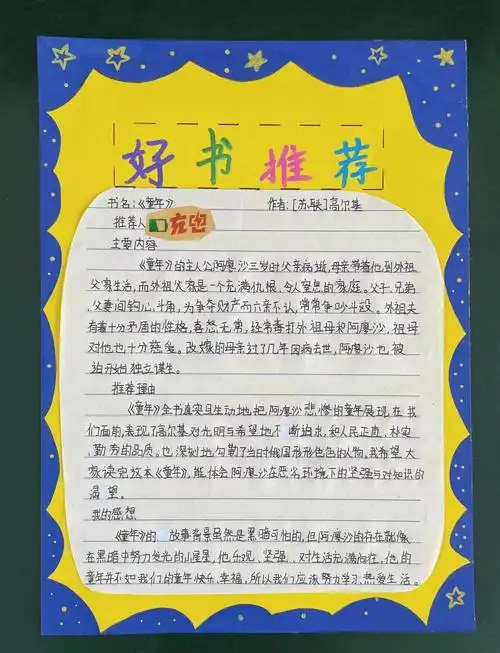 好书推荐
书名:《童年》 作者:[苏联]高尔基
推荐人
主要内容
《童年》的主人公阿廖沙三岁时父亲病逝,母亲带着他到外祖
父家生活,而外祖父家是一个充满仇恨、令人窒息的家庭。父子、兄弟、
父妻间钩心斗角,为争夺财产而六亲不认,常常争吵斗殴。外祖夫
有着十分矛盾的性格,喜怒无常,经常毒打外祖母和阿廖沙,祖母
对他也十分慈爱。改嫁的母亲过了几年因病去世,阿廖沙也被
迫开始独立谋生。
推荐理由
《童年》全书真实且生动地把阿廖沙悲惨的童年展现在我
们面前,表现了高尔基对光明与希望地不断追求,和人民正直、朴实、
勤劳的品质。也深刻地勾勒了当时俄国形形色色的人物。我希望大
家读完这本《童年》,能体会阿廖沙在恶劣环境下的坚强与对知识的
渴望。
我的感想
《童年》的故事背景虽然是黑暗可怕的,但阿廖沙的存在就像
在黑暗中努力发光的小星星,他乐观、坚强、对生活充满向往,他的
童年并不如我们的童年快乐、幸福,所以我们应该努力学习,热爱生活。